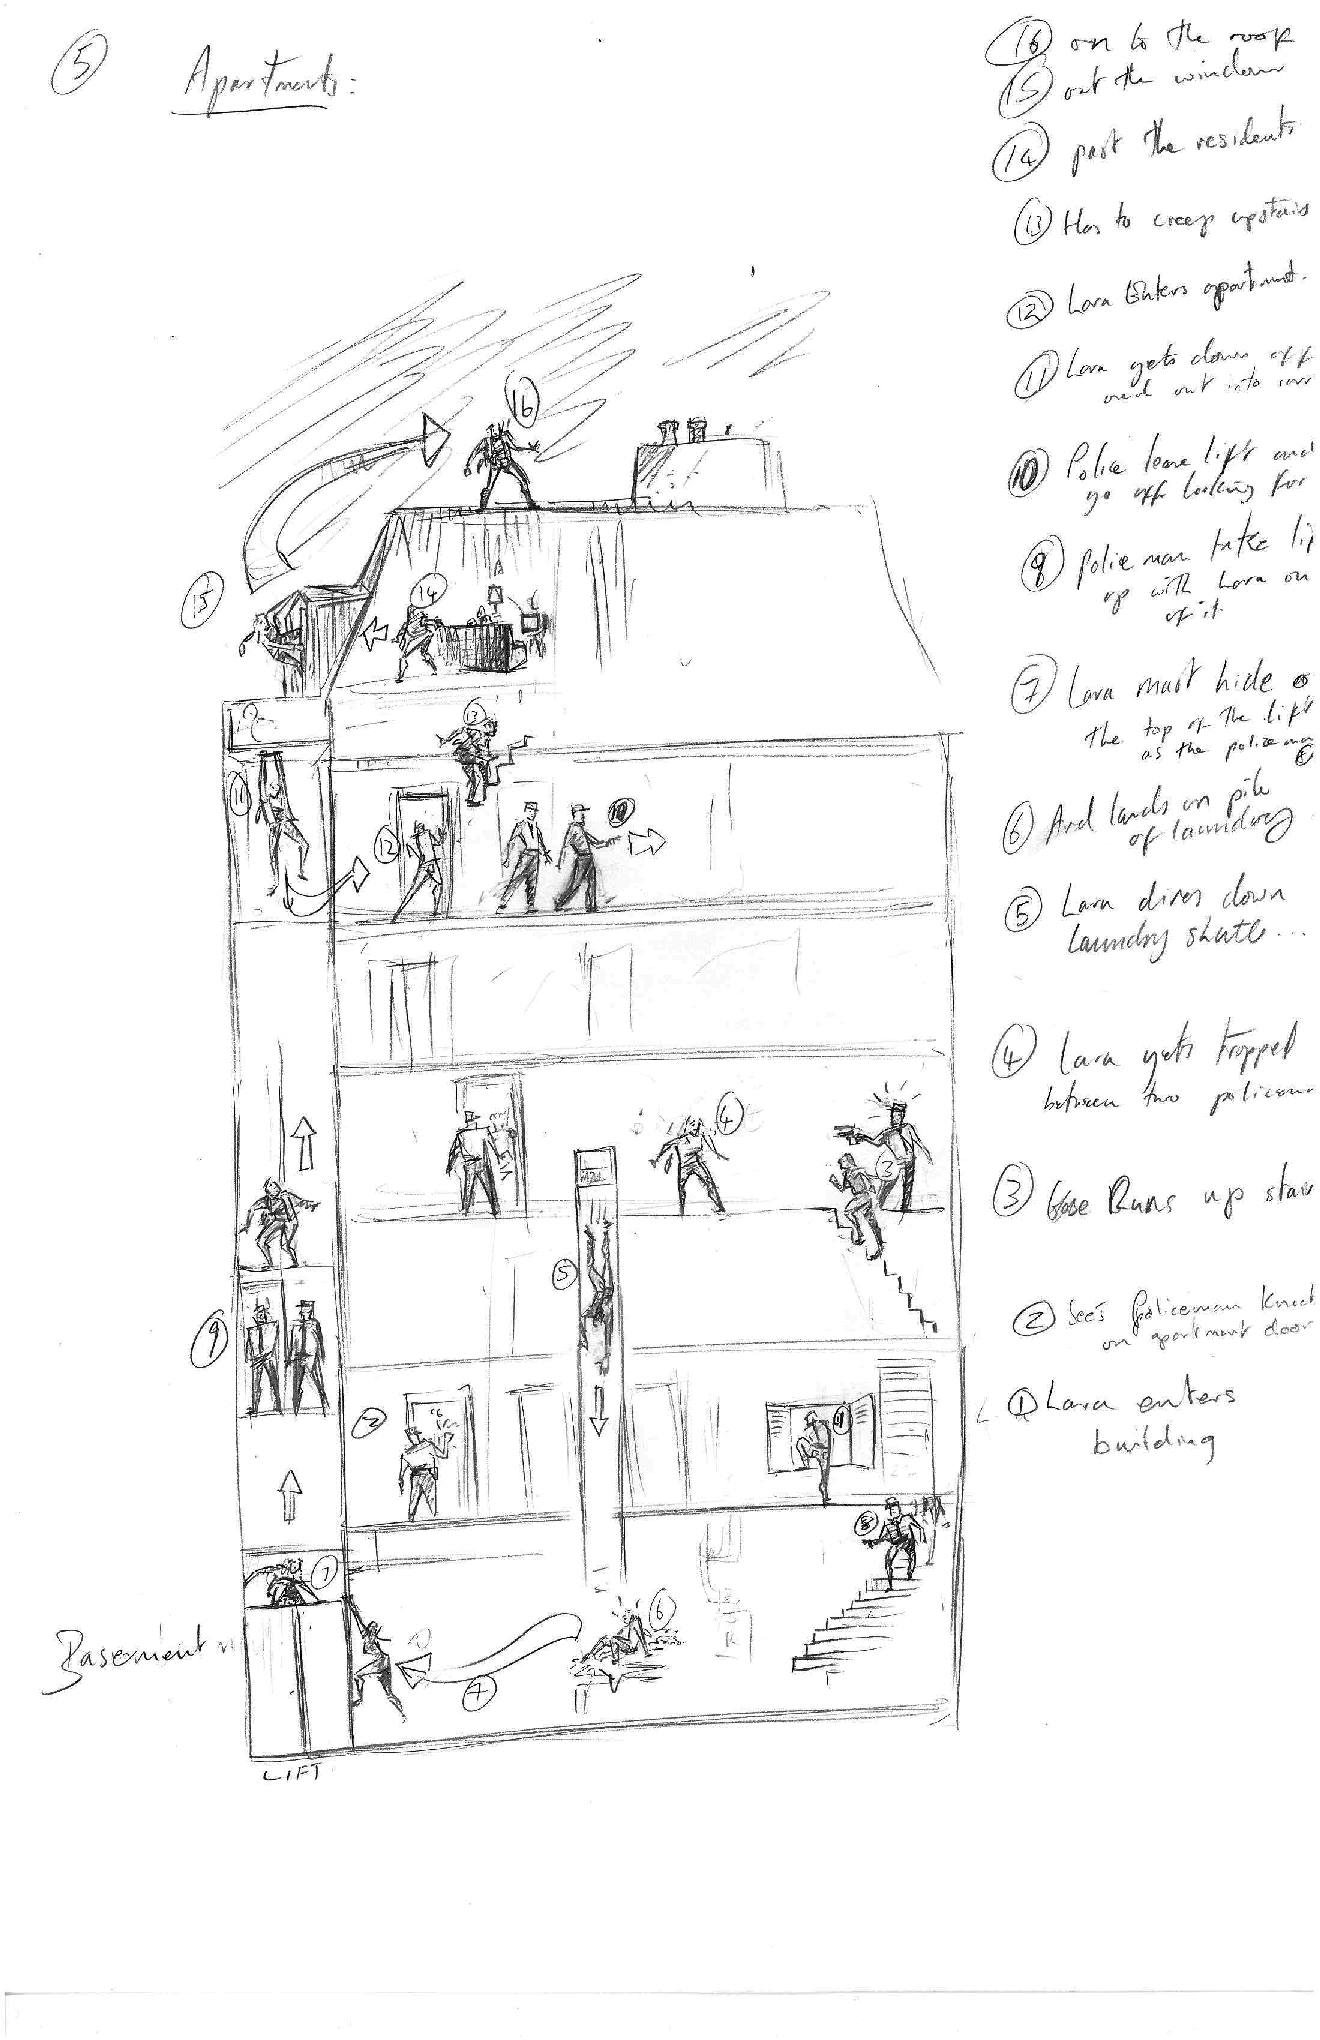 5 Apartments:
16 on to the roof
15 out the window
14 past the residents
13 Has to creep upstairs
12 Lara Enters apartment.
11 Lara gets down off
and out into corr
10 Police leave lift and
go off looking for
9 Police man take li
up with Lara on
of it
7 Lara must hide o
the top of the lift
as the policeman
8
6 And lands on pile
of laundry
5 Lara dives down
laundry shute...
4 Lara gets trapped
between two policem
3 Runs up stair
2 Sees Policeman knock
on apartment door
1 Lara enters
building
16
15
14
13
11
12
10
4
3
5
9
2
1
8
7
6
7
Basement
LIFT